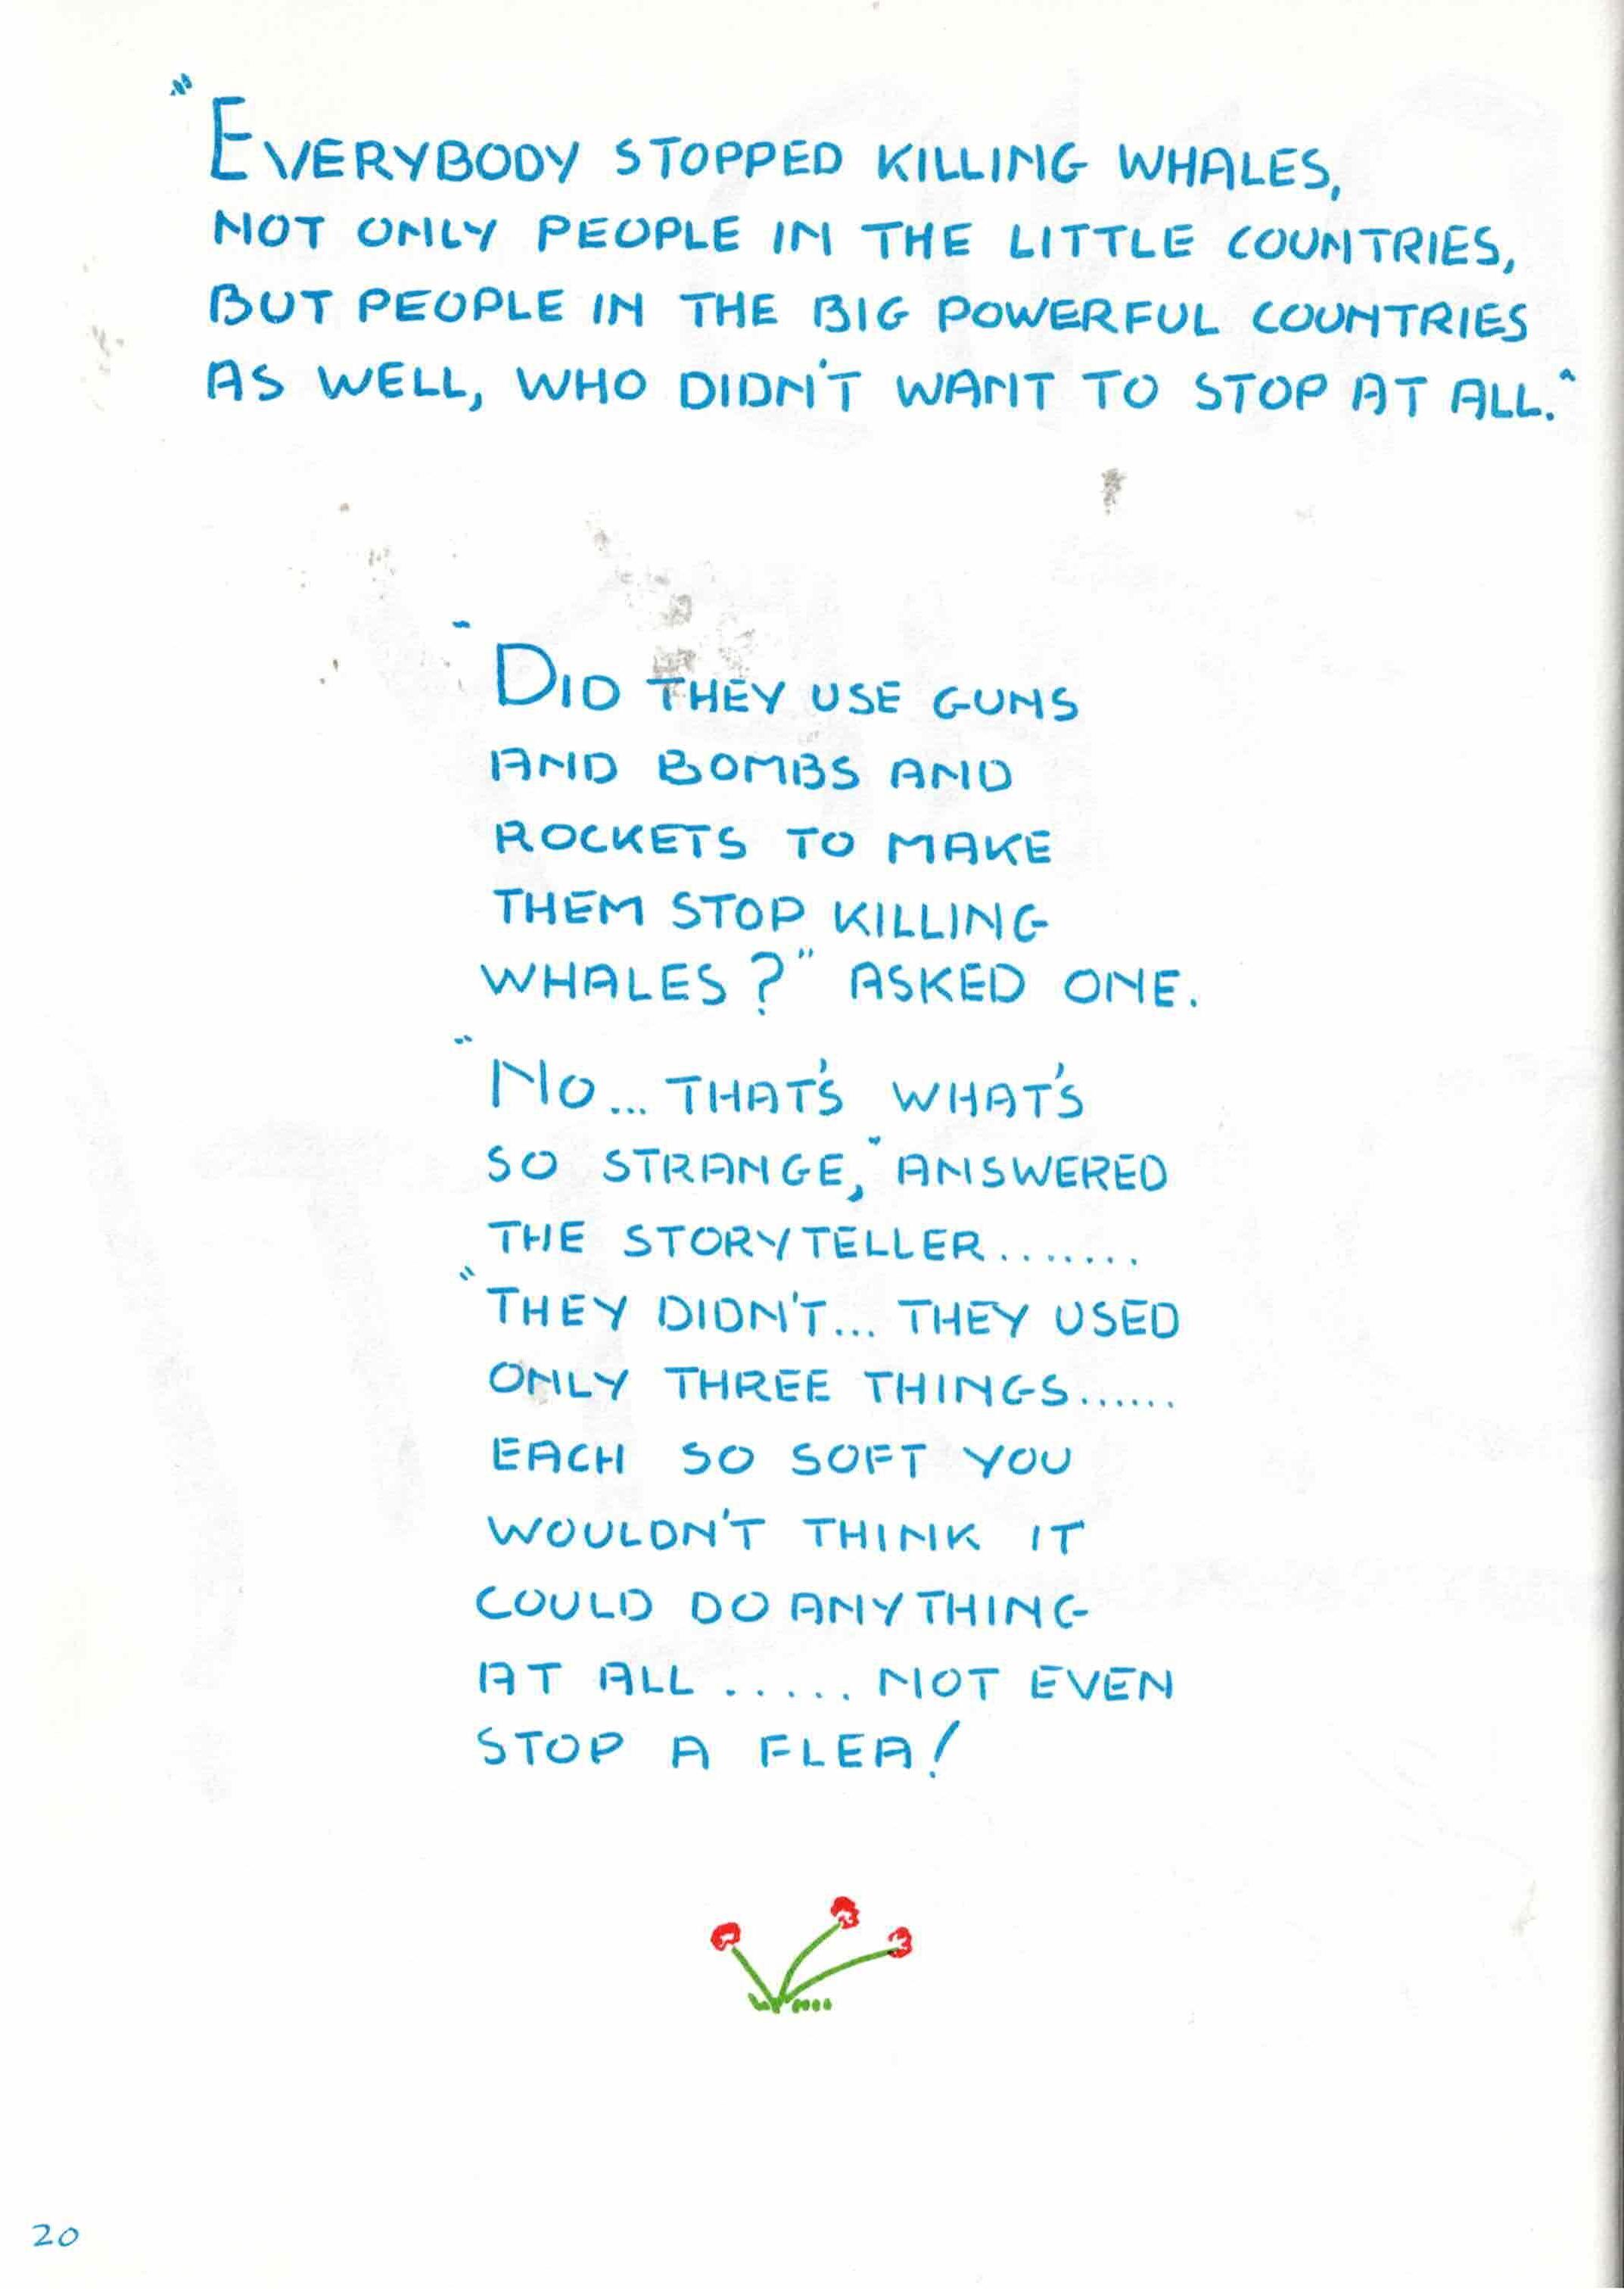 "EVERYBODY STOPPED KILLING WHALES,
NOT ONLY PEOPLE IN THE LITTLE COUNTRIES,
BUT PEOPLE IN THE BIG POWERFUL COUNTRIES
AS WELL, WHO DIDN'T WANT TO STOP AT ALL."
"DID THEY USE GUNS
AND BOMBS AND
ROCKETS TO MAKE
THEM STOP KILLING
WHALES?" ASKED ONE.
"NO... THAT'S WHAT'S
SO STRANGE," ANSWERED
THE STORYTELLER........
"THEY DIDN'T... THEY USED
ONLY THREE THINGS......
EACH SO SOFT YOU
WOULDN'T THINK IT
COULD DO ANYTHING
AT ALL ..... NOT EVEN
STOP A FLEA!
20